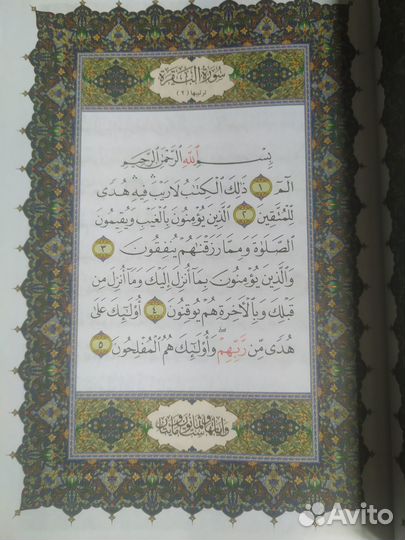 سُورَةُ الْبَقَرَةِ
ترتيبها (٢)
بِسْمِ اللَّهِ الرَّحْمَٰنِ الرَّحِيمِ
الٓمٓ ١ ذَٰلِكَ الْكِتَٰبُ لَا رَيْبَ ۛ فِيهِ ۛ هُدًى
لِّلْمُتَّقِينَ ٢ الَّذِينَ يُؤْمِنُونَ بِالْغَيْبِ وَيُقِيمُونَ
الصَّلَوٰةَ وَمِمَّا رَزَقْنَٰهُمْ يُنفِقُونَ ٣
وَالَّذِينَ يُؤْمِنُونَ بِمَآ أُنزِلَ إِلَيْكَ وَمَآ أُنزِلَ مِن
قَبْلِكَ وَبِالْءَاخِرَةِ هُمْ يُوقِنُونَ ٤ أُو۟لَٰٓئِكَ عَلَىٰ
هُدًى مِّن رَّبِّهِمْ ۖ وَأُو۟لَٰٓئِكَ هُمُ الْمُفْلِحُونَ ٥
Avito